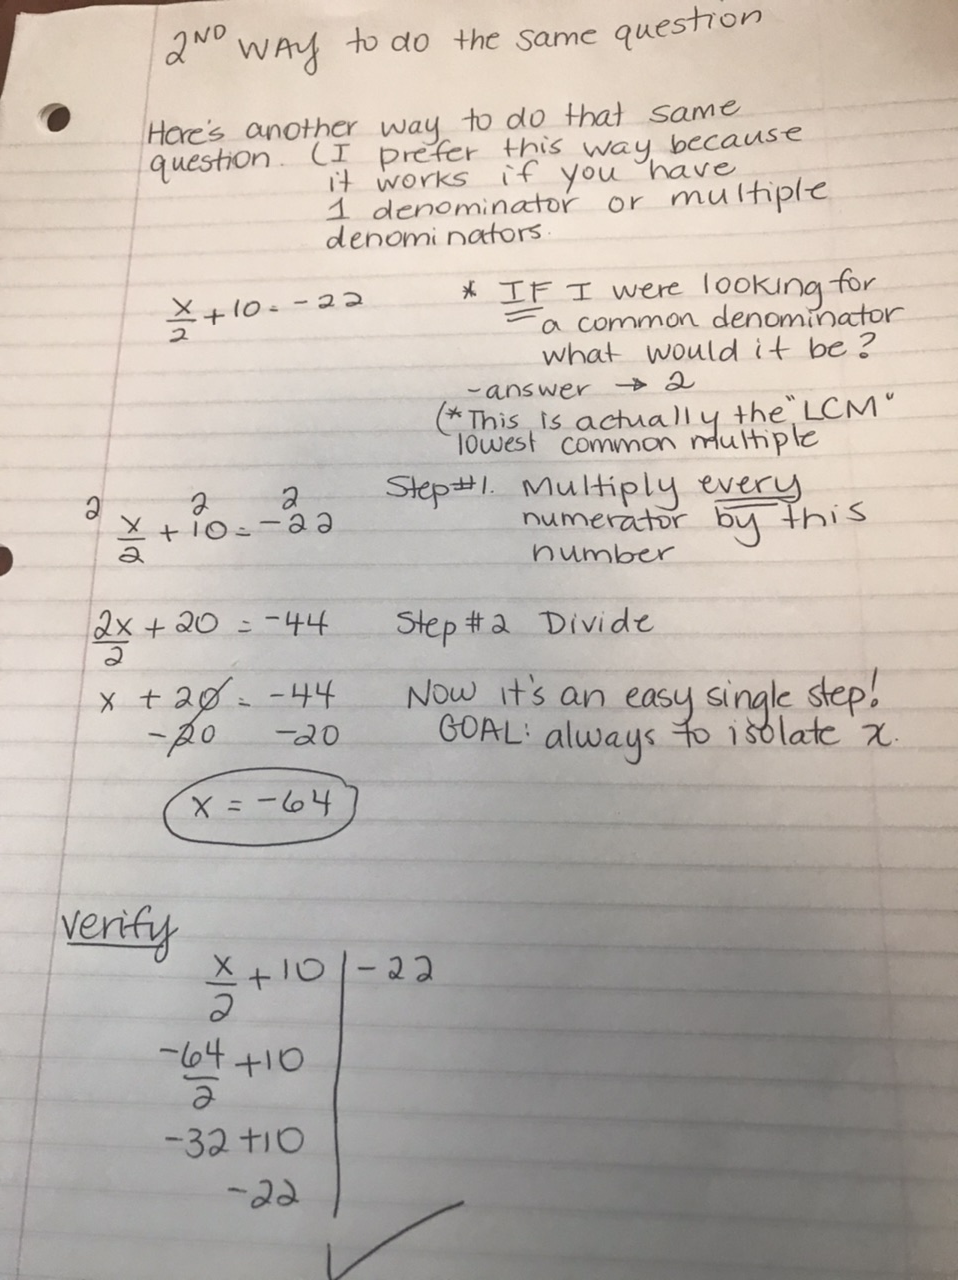 2ND WAY to do the same question
Here's another way to do that same
question. (I prefer this way because
it works if you have
1 denominator or multiple
denominators.
x/2 + 10 = -22
* IF I were looking for
a common denominator
what would it be?
-answer → 2
(*This is actually the "LCM"
lowest common multiple
2 2 2
x/2 + 10 = -22
Step#1. Multiply every
numerator by this
number
2x/2 + 20 = -44 Step #2 Divide
x + 20 = -44 Now it's an easy single step!
-20 -20 GOAL: always to isolate x.
x = -64
Verify
x/2 + 10 | -22
-64/2 +10
-32 +10
-22
✓